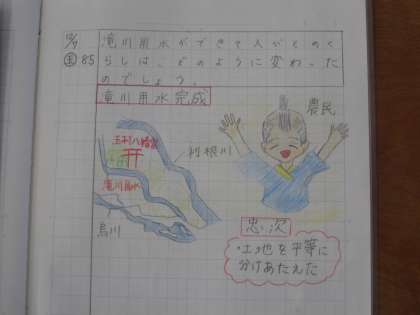 85
滝川用水ができて人びとのく
らしは、どのように変わった
のでしょう。
滝川用水完成
農民
玉村八幡宮
利根川
滝川用水
烏川
忠次
・土地を平等に
分けあたえた